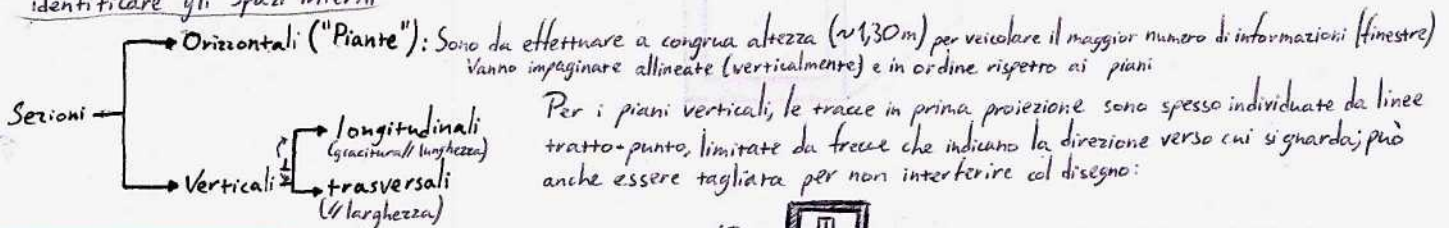 identificare gli spazi interni
Orizzontali ("Piante"): Sono da effettuare a congrua altezza (~1,30m) per veicolare il maggior numero di informazioni (finestre)
Vanno impaginare allineate (verticalmente) e in ordine rispetto ai piani
Sezioni
Verticali
longitudinali
(giacitura // lunghezza)
trasversali
(// larghezza)
Per i piani verticali, le tracce in prima proiezione sono spesso individuate da linee
tratto-punto, limitate da frecce che indicano la direzione verso cui si guarda; può
anche essere tagliata per non interferire col disegno: